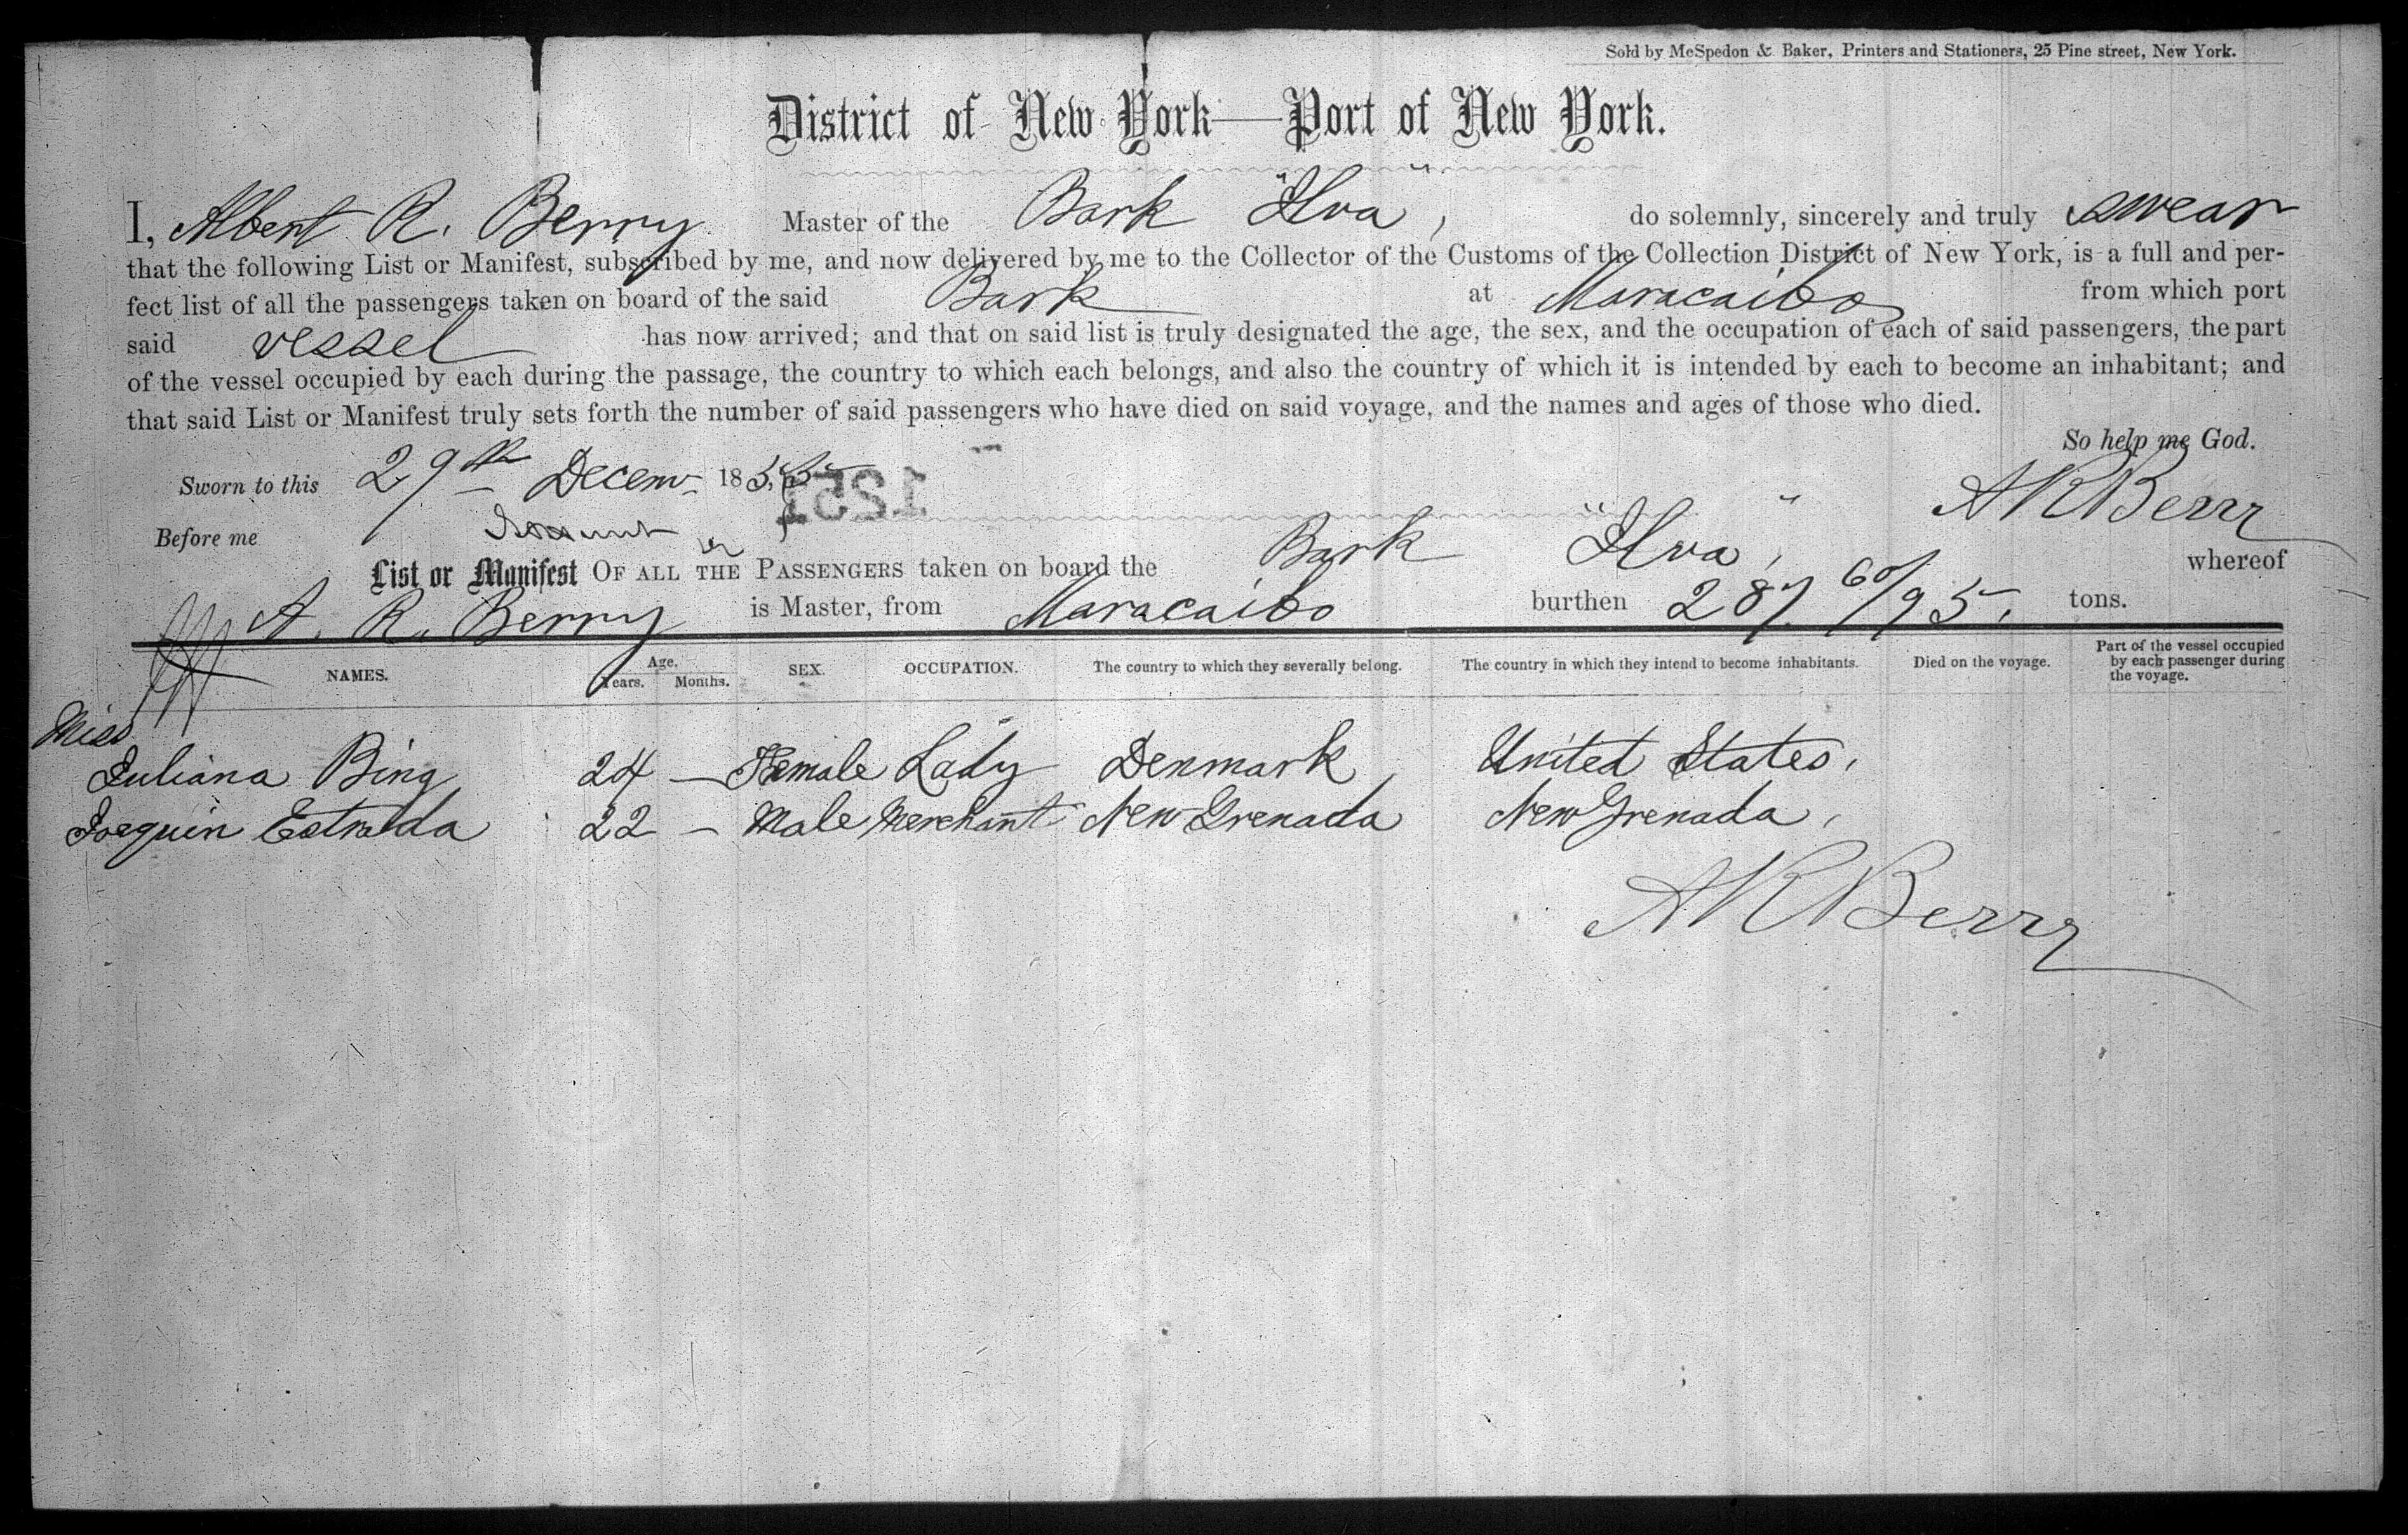 Sold by McSpedon & Baker, Printers and Stationers, 25 Pine street, New York.
District of New York—Port of New York.
I, Albert R. Berry Master of the Bark "Ilva", do solemnly, sincerely and truly swear
that the following List or Manifest, subscribed by me, and now delivered by me to the Collector of the Customs of the Collection District of New York, is a full and per-
fect list of all the passengers taken on board of the said Bark at Maracaibo from which port
said vessel has now arrived; and that on said list is truly designated the age, the sex, and the occupation of each of said passengers, the part
of the vessel occupied by each during the passage, the country to which each belongs, and also the country of which it is intended by each to become an inhabitant; and
that said List or Manifest truly sets forth the number of said passengers who have died on said voyage, and the names and ages of those who died.
So help me God.
Sworn to this 29th Decem 1855 1251
A R Berry
Before me
List or Manifest OF ALL THE PASSENGERS taken on board the Bark "Ilva", whereof
A. R. Berry is Master, from Maracaibo burthen 287 60/95. tons.
NAMES. Age. Years. Months. SEX. OCCUPATION. The country to which they severally belong. The country in which they intend to become inhabitants. Died on the voyage. Part of the vessel occupied by each passenger during the voyage.
Miss
Juliana Bing 24 — Female Lady Denmark United States,
Joequin Estrada 22 — Male Merchant New Grenada New Grenada,
A R Berry